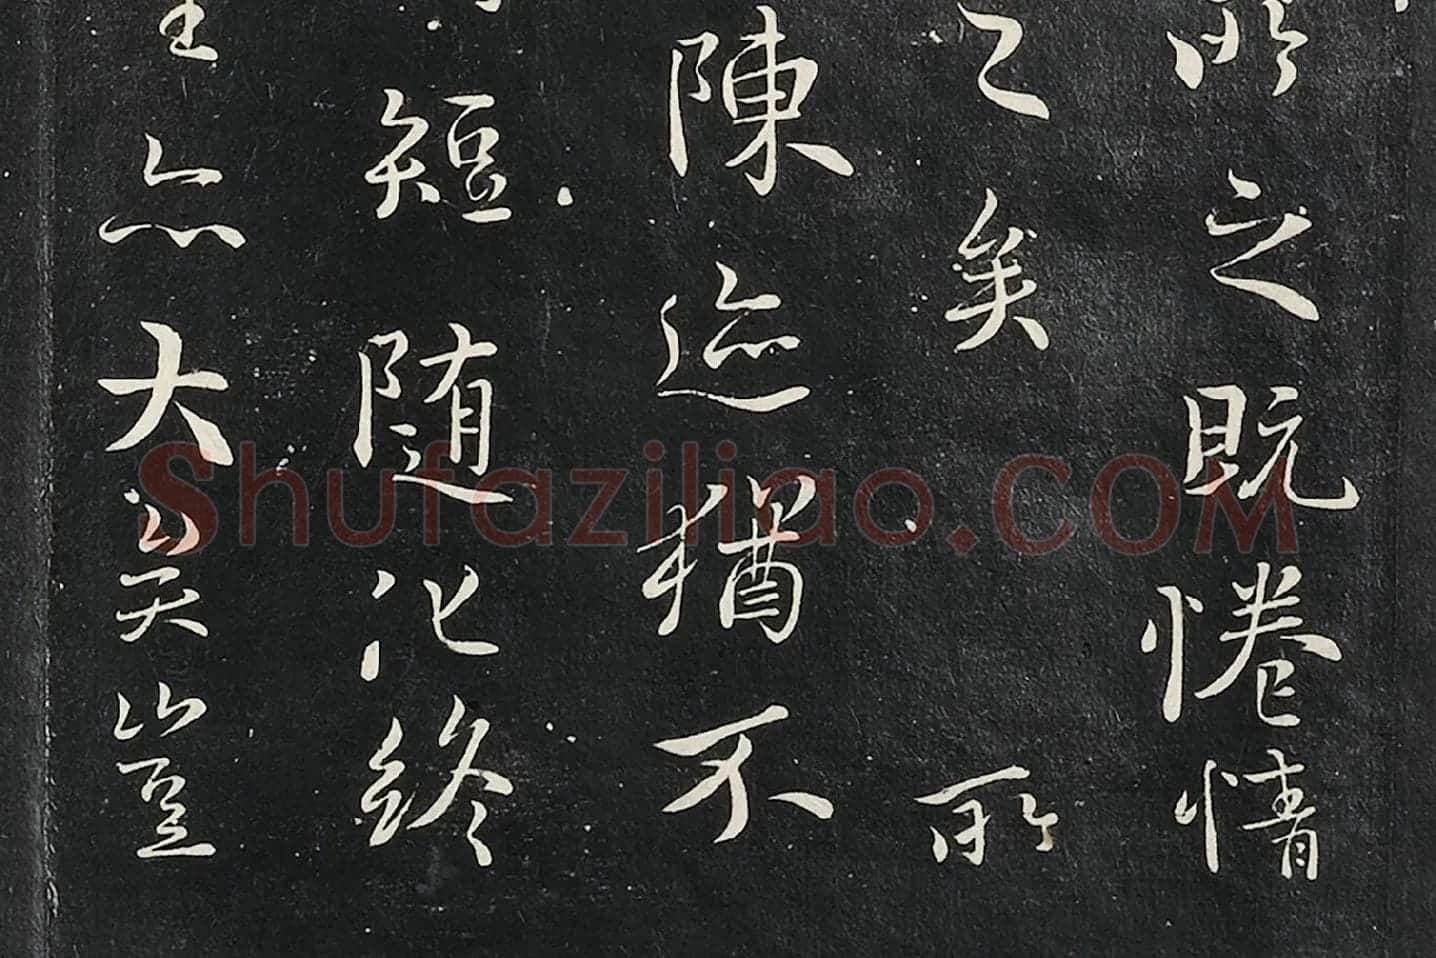 所之既惓情
之矣所
陳迹猶不
短随化終
生亦大矣豈
Shufaziliao.COM